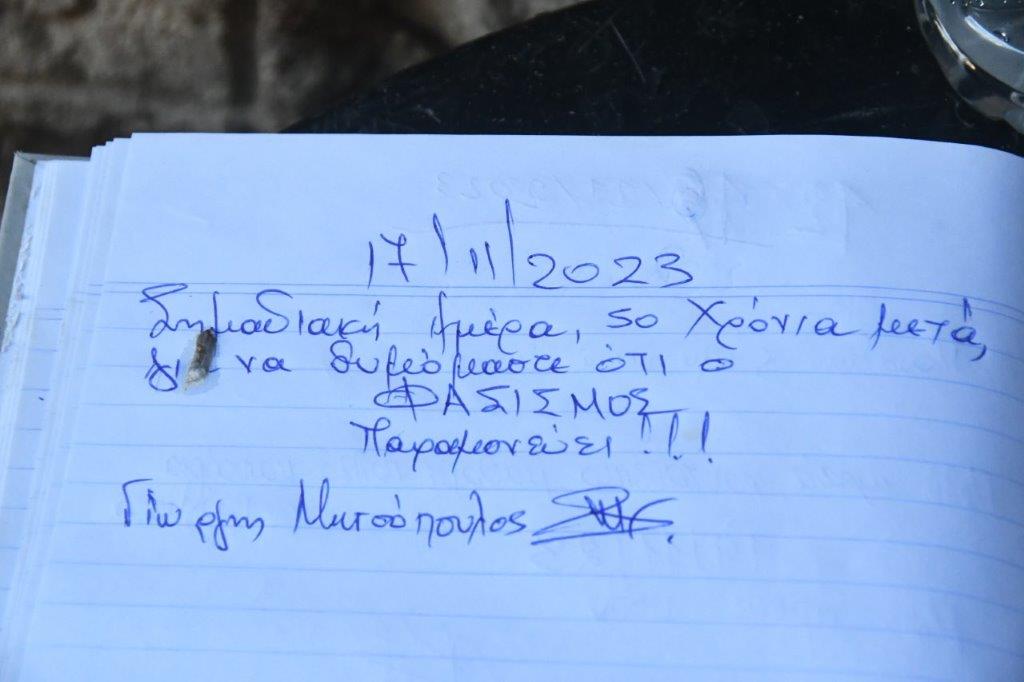 17/11/2023
Σημαδιακή ημέρα, 50 Χρόνια μετά,
για να θυμόμαστε ότι ο
ΦΑΣΙΣΜΟΣ
Παραμονεύει!!!
Γιώργης Μητσόπουλος